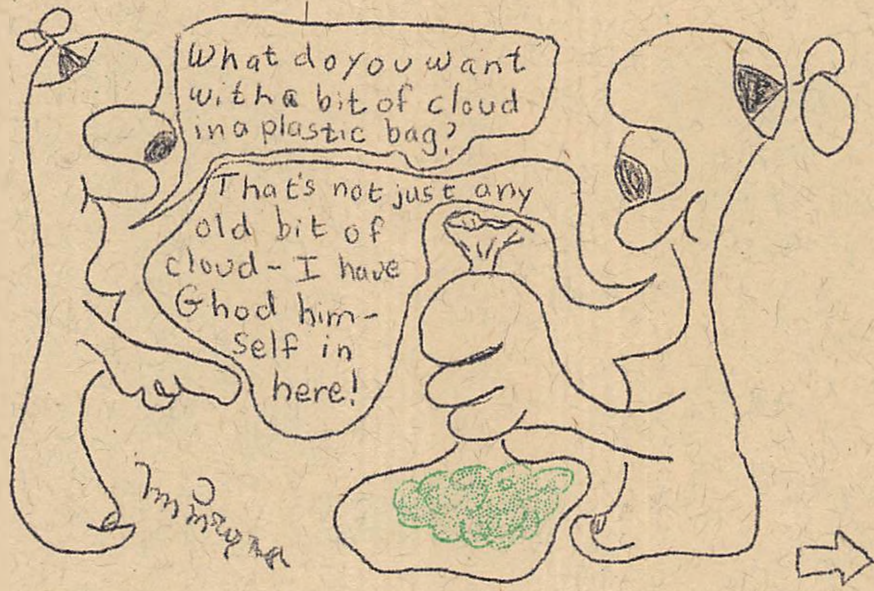 What do you want
with a bit of cloud
in a plastic bag?
That's not just any
old bit of
cloud - I have
Ghod him-
self in
here!